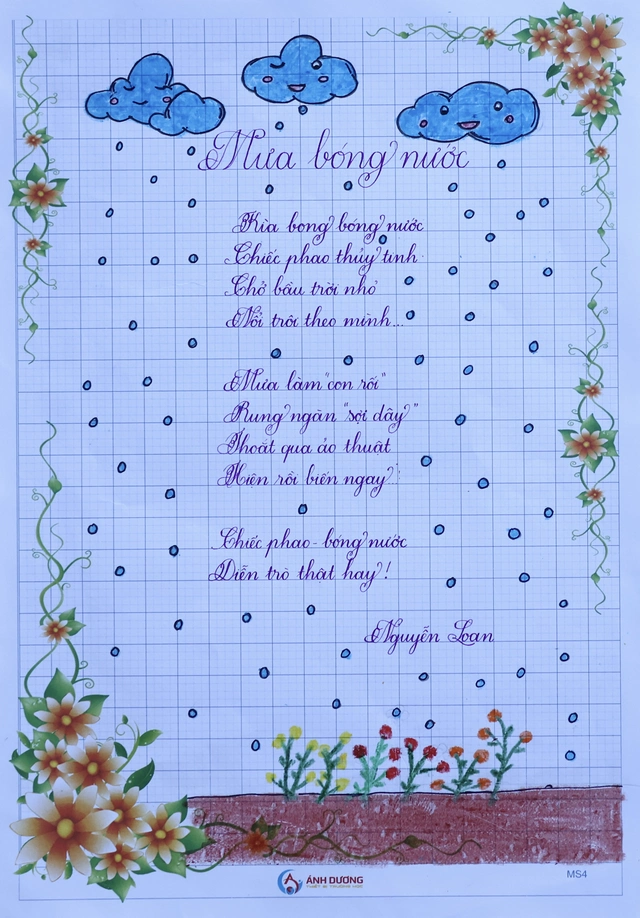 Mưa bóng nước
Kìa bong bóng nước
Chiếc phao thủy tinh
Chở bầu trời nhỏ
Nổi trôi theo mình...
Mưa làm "con rối"
Rung ngàn "sợi dây"
Thoắt qua ảo thuật
Hiện rồi biến ngay!
Chiếc phao - bóng nước
Diễn trò thật hay!
Nguyễn Loan
ÁNH DƯƠNG
THIẾT BỊ TRƯỜNG HỌC
MS4